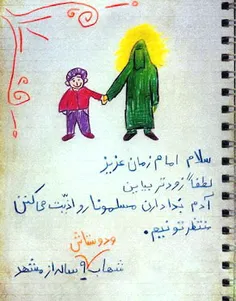 سلام امام زمان عزیز
لطفاً زودتر بیاین
آدم بدا دارن مسلمونا رو اذیّت می‌کنن
منتظرتونیم.
و دوستاش
شهاب ۹ ساله از مشهد